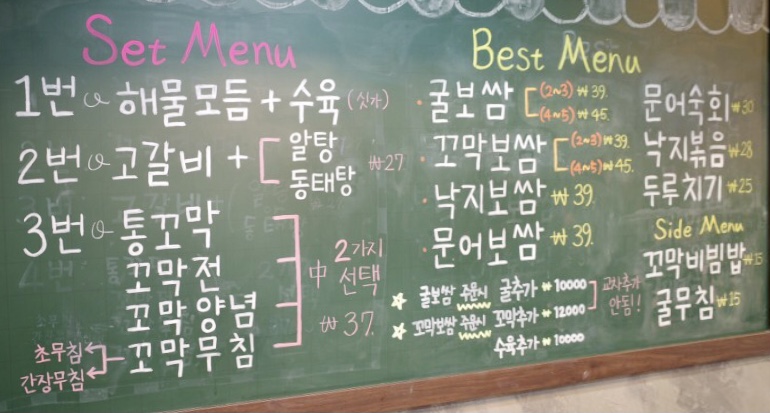 Set Menu
1번 해물모듬 + 수육 (싯가)
2번 고갈비 + 알탕 동태탕 ₩27
3번 통꼬막
꼬막전
꼬막양념
꼬막무침
中 2가지 선택
₩37.
초무침
간장무침
Best Menu
굴보쌈 (2~3) ₩39.
(4~5) ₩45.
꼬막보쌈 (2~3) ₩39.
(4~5) ₩45.
낙지보쌈 ₩39.
문어보쌈 ₩39.
☆ 굴보쌈 주문시 굴추가 ₩10000
☆ 꼬막보쌈 주문시 꼬막추가 ₩12000
교차추가 안됨!!
수육추가 ₩10000
문어숙회 ₩30
낙지볶음 ₩28
두루치기 ₩25
Side Menu
꼬막비빔밥 ₩15
굴무침 ₩15